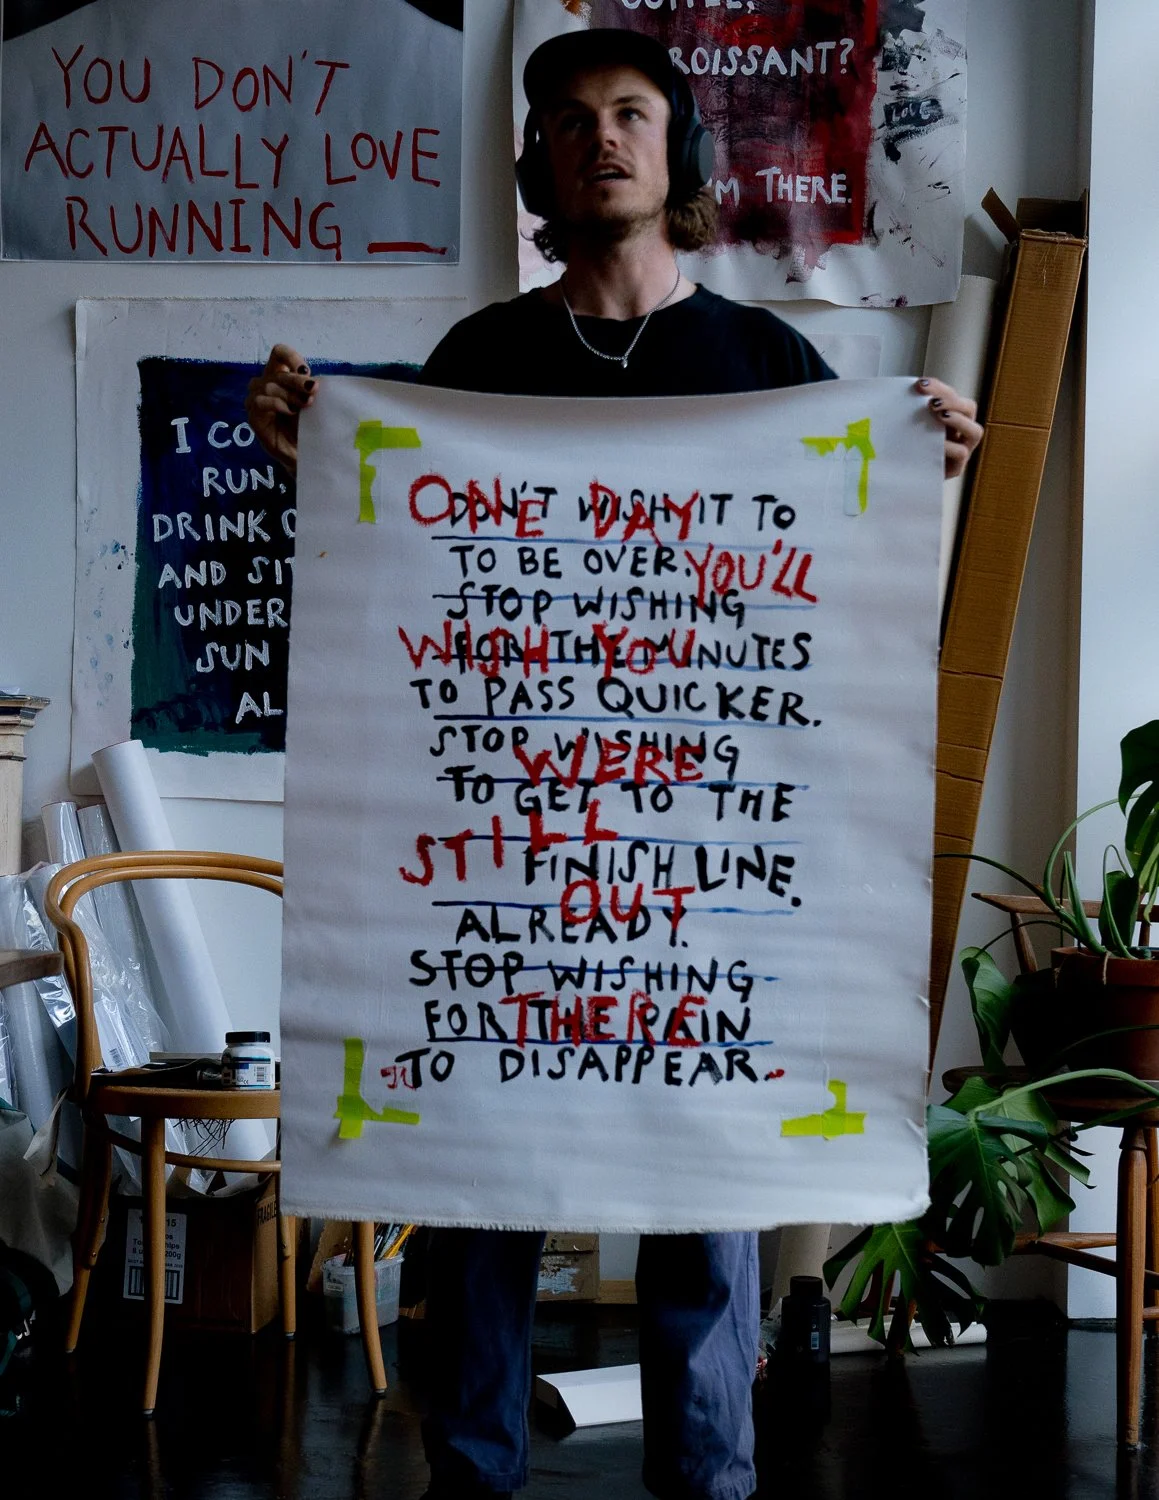 YOU DON'T
ACTUALLY LOVE
RUNNING
COFFEE?
ROISSANT?
M THERE.
LOVE
I CO
RUN,
DRINK
AND SIT
UNDER
SUN
AL
DON'T WISH IT TO
TO BE OVER.
STOP WISHING
FOR THE MINUTES
TO PASS QUICKER.
STOP WISHING
TO GET TO THE
FINISH LINE.
ALREADY.
STOP WISHING
FOR THE PAIN
TO DISAPPEAR.
ONE DAY
YOU'LL
WISH YOU
WERE
STILL
OUT
THERE
FRAGILE